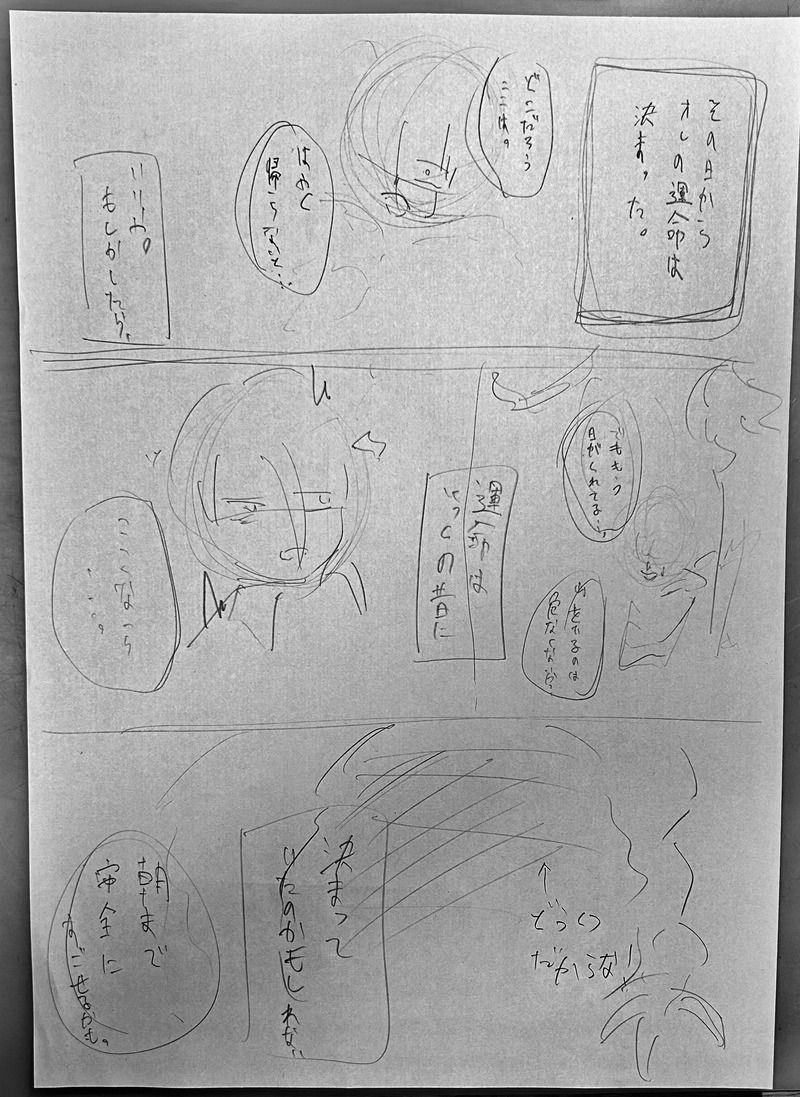 その日から
オレの運命は
決まった。
どこだろう
ここは。
はやく
帰らなきゃ…
いいや。
もしかしたら、
でももう
日がくれてる…
山を下るのは
危ないな
運命は
とっくの昔に
ここなら
……。
決まって
いたのかもしれない
↑
どうくつ
だからな!
朝まで
安全に
すごせるかも。